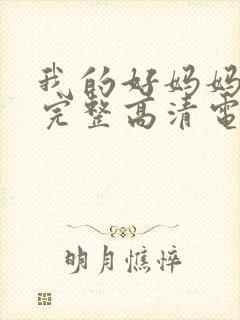 我的好妈妈
完整高清电
明月憔悴